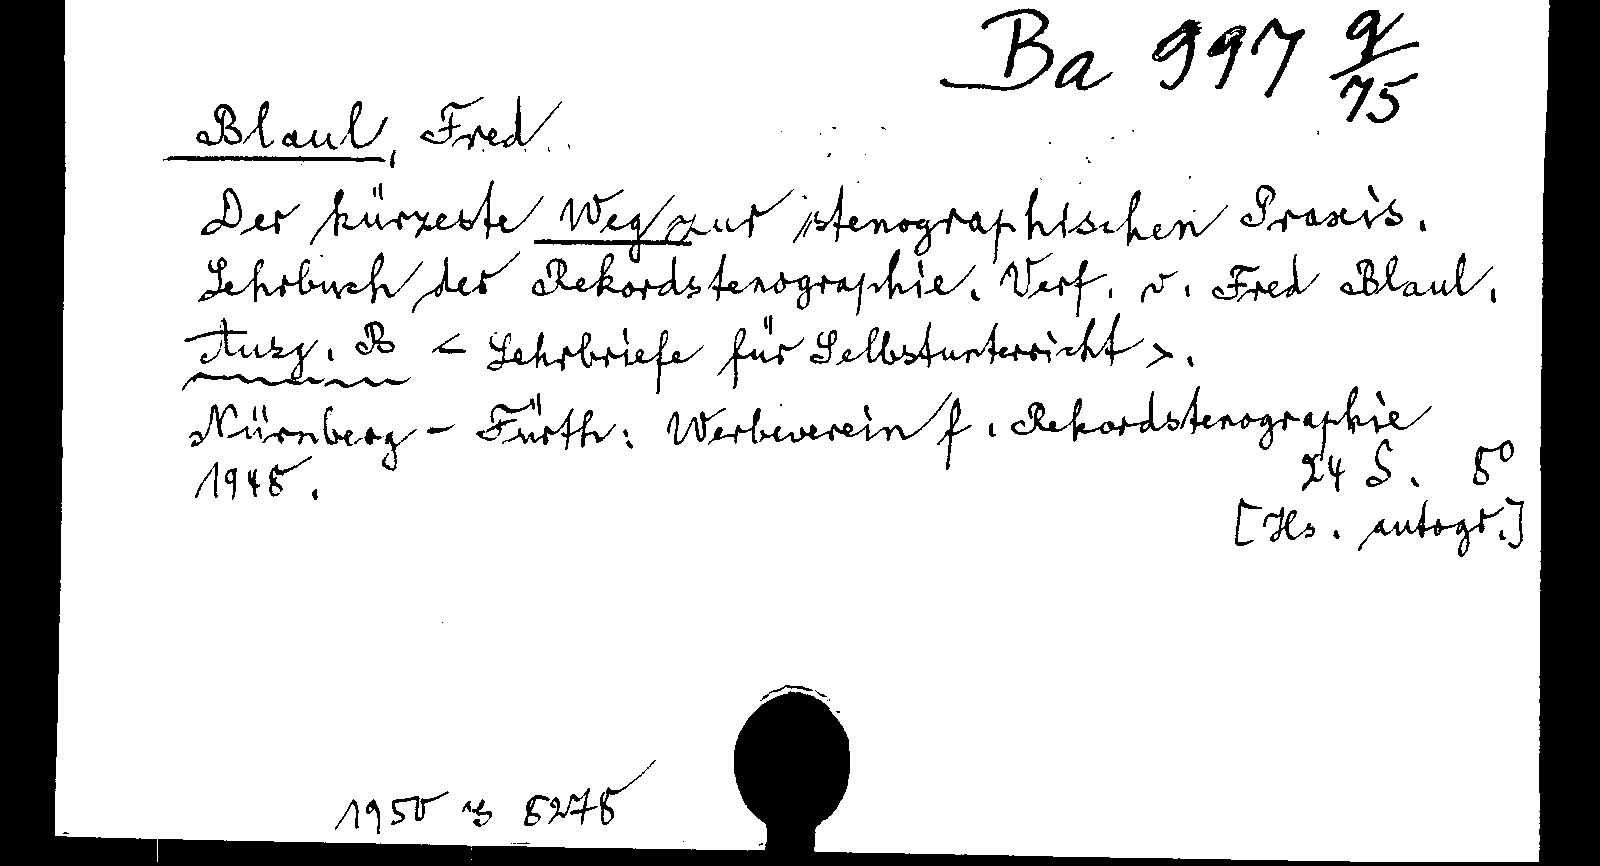 Ba 997 q/75
Blaul, Fred
Der kürzeste Weg zur stenographischen Praxis.
Lehrbuch der Rekordstenographie. Verf. v. Fred Blaul.
Ausg. B < Lehrbriefe für Selbstunterricht >.
Nürnberg - Fürth: Werbeverein f. Rekordstenographie
1948. 24 S. 8°
[Hs. autogr.]
1950 8278